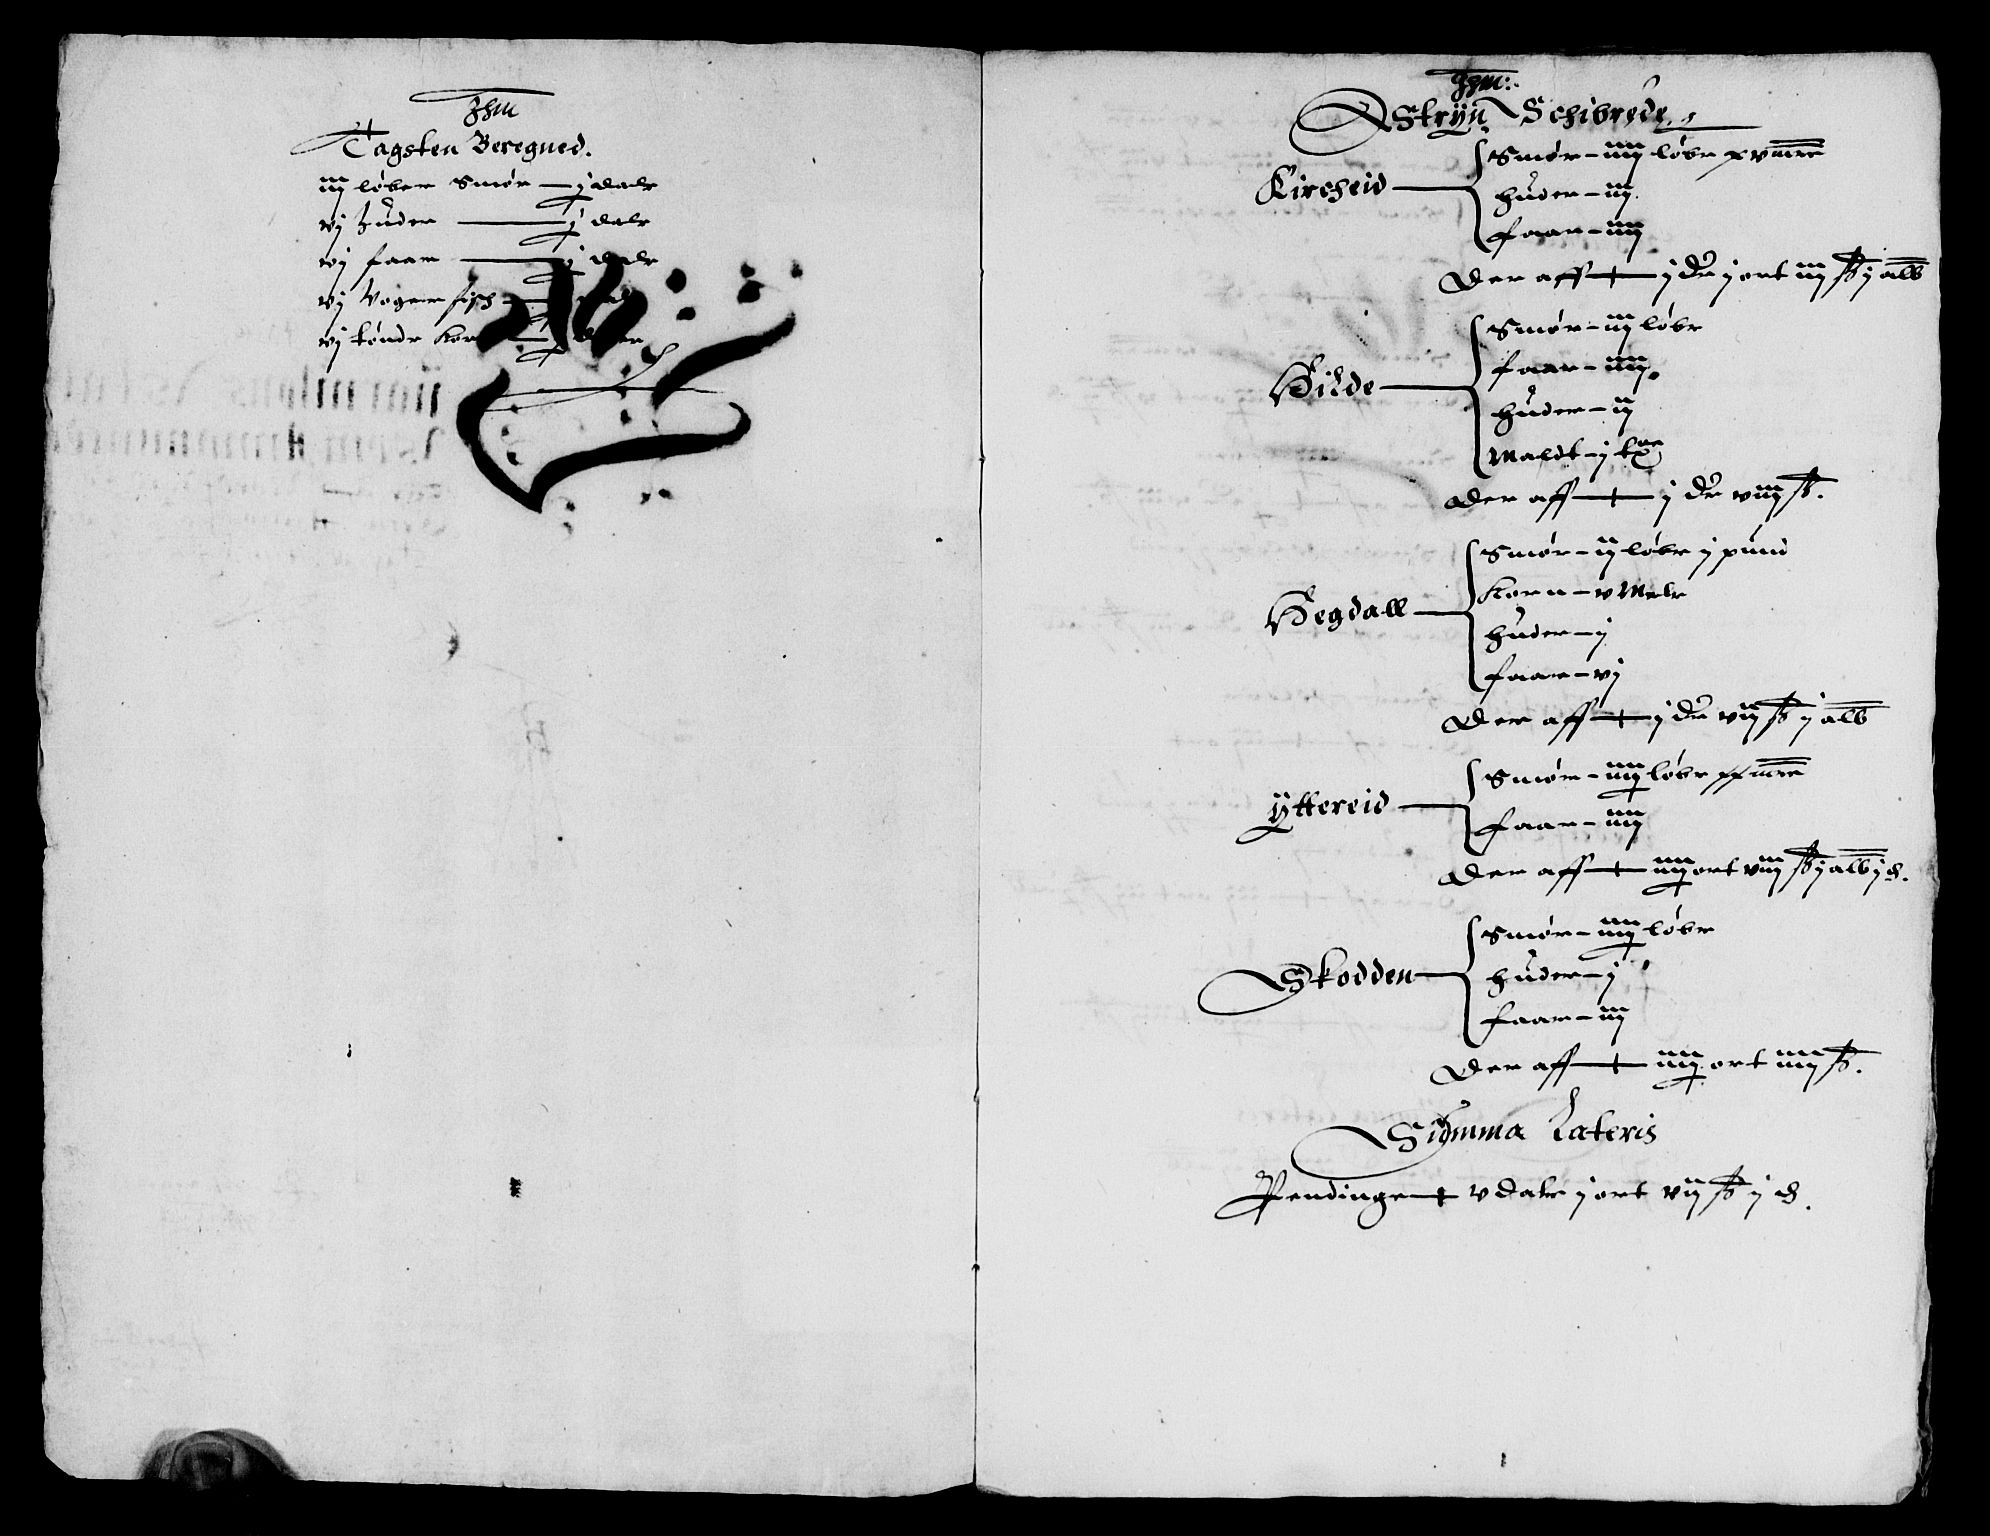 Jhm
Tagsten Beregned.
iij løber Smør — j dalr
vj huder — j dalr
vj faar — j dalr
vj Voger fisk — j
vj tønde Kor
Jhm:
Strÿn Schibrede
Kircheid
Smør – iiij løbr xv mrc
huder – iij
faar – iiij
Der aff — j dr j ort iij ß j alb
Hilde
Smør – iij løbr
faar – iiij
huder – ij
Maldt – j tø
Der aff — j dr viij ß.
Hegdall
Smør – ij løbr j pund
Korn – v Melr
huder – j
faar – vj
Der aff — j dr vij ß j alb
Ÿttereid
Smør – iiij løbr xx mrc
faar – iiij
Der aff — iiij ort viij ß j alb j d.
Skodden
Smør – iiij løbr
huder – j
faar – iij
Der aff — iiij ort iiij ß.
Summa Lateris
Pendinge — v dalr j ort vij ß j d.